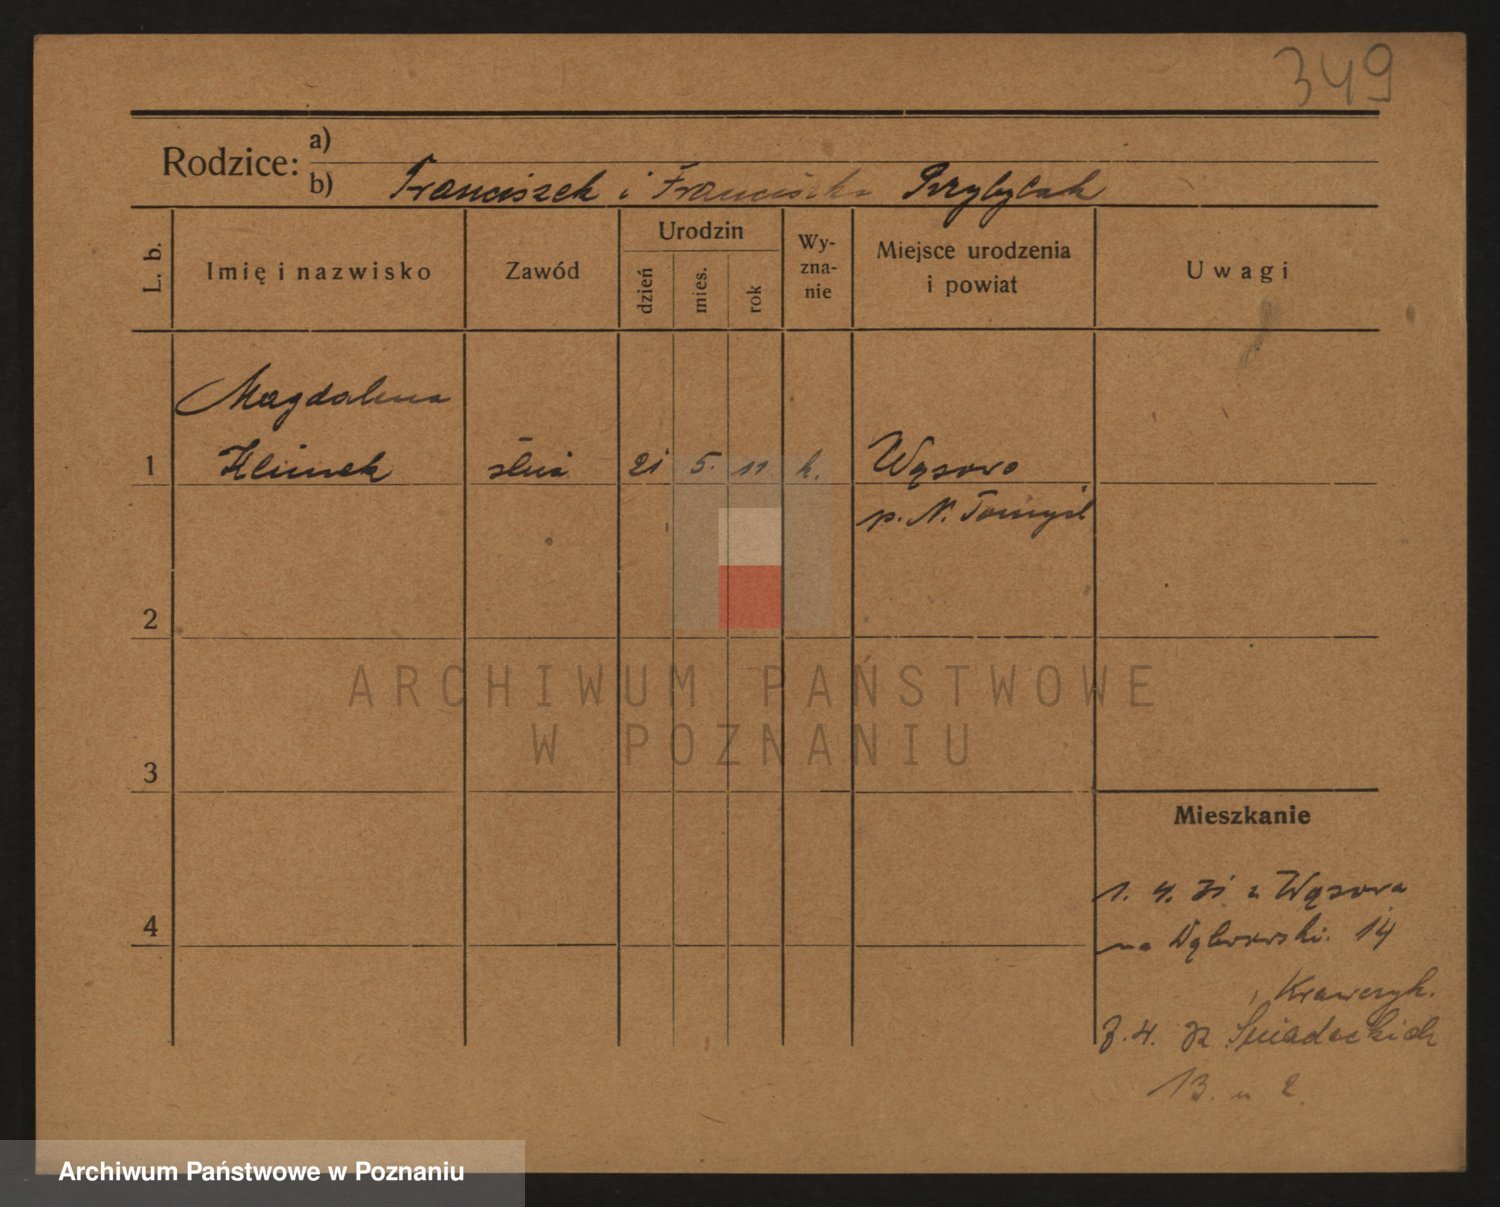 349
Rodzice: a)
b) Franciszek i Franciszka Przybylak
L. b.
Imię i nazwisko
Zawód
Urodzin
dzień
mies.
rok
Wy-
zna-
nie
Miejsce urodzenia
i powiat
Uwagi
Magdalena
1 Klimek służ. 21 5. 11 k. Wąsowo
p. N. Tomyśl
2
3
4
Mieszkanie
1. 4. 31 z Wąsowa
na Dąbrowski. 14
Krawczyk.
3. 4. 32 Śniadeckich
13. u 2.
ARCHIWUM PAŃSTWOWE
W POZNANIU
Archiwum Państwowe w Poznaniu